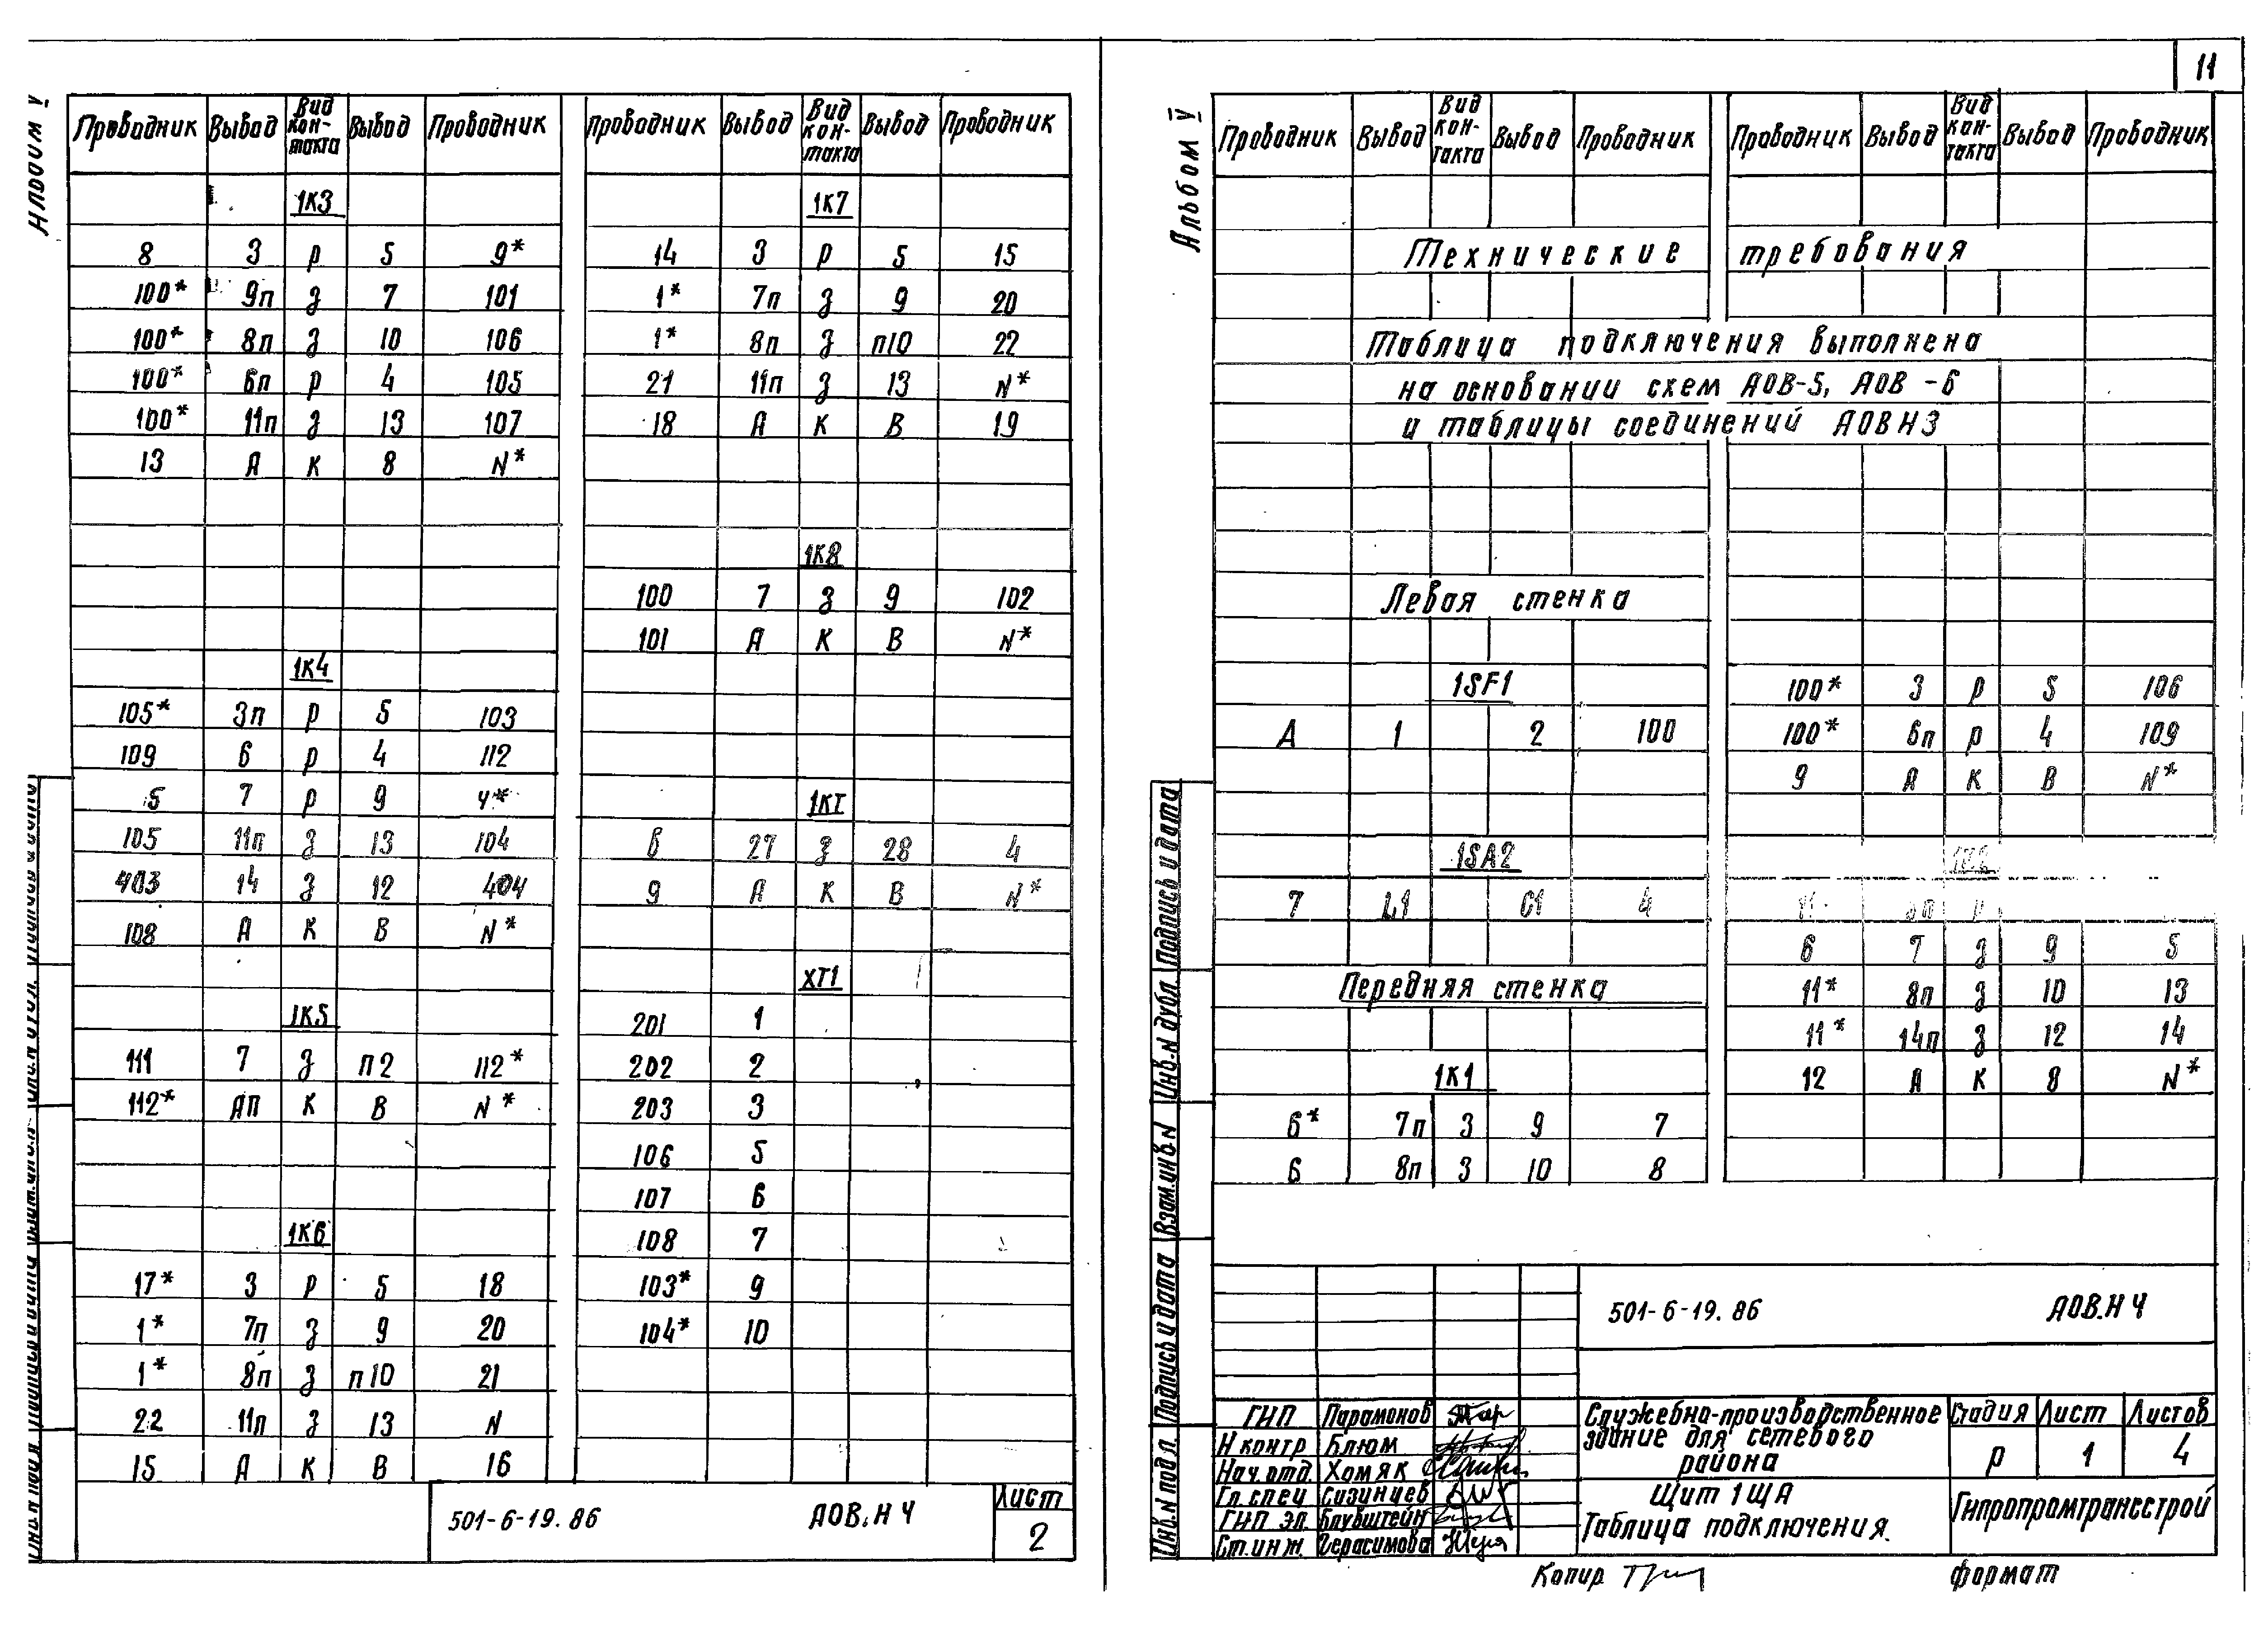 11
Альбом V
Проводник Вывод Вид кон-такта Вывод Проводник
1К3
8 3 р 5 9*
100* 9п з 7 101
100* 8п з 10 106
100* 6п р 4 105
100* 11п з 13 107
13 А К 8 N*
1К4
105* 3п р 5 103
109 6 р 4 112
5 7 р 9 4*
105 11п з 13 104
403 14 з 12 404
108 А К В N*
1К5
111 7 з п2 112*
112* АП К В N*
1К6
17* 3 р 5 18
1* 7п з 9 20
1* 8п з п10 21
22 11п з 13 N
15 А К В 16
Проводник Вывод Вид кон-такта Вывод Проводник
1К7
14 3 р 5 15
1* 7п з 9 20
1* 8п з п10 22
21 11п з 13 N*
18 А К В 19
1К8
100 7 з 9 102
101 А К В N*
1КТ
6 27 з 28 4
9 А К В N*
ХТ1
201 1
202 2
203 3
106 5
107 6
108 7
103* 9
104* 10
501-6-19.86 АОВ.Н4 Лист
2
Альбом V
Проводник Вывод Вид кон-такта Вывод Проводник
Проводник Вывод Вид кон-такта Вывод Проводник
Технические требования
Таблица подключения выполнена
на основании схем АОВ-5, АОВ-6
и таблицы соединений АОВ Н3
Левая стенка
1SF1
А 1 2 100
1SA2
7 L1 C1 4
Передняя стенка
1К1
6* 7п З 9 7
6 8п З 10 8
100* 3 р 5 106
100* 6п р 4 109
9 А К В N*
6 7 з 9 5
11* 8п з 10 13
11* 14п з 12 14
12 А К 8 N*
Инв.N подл. Подпись и дата Взам.инв.N Инв.N дубл. Подпись и дата
501-6-19.86 АОВ.Н4
ГИП Парамонов
Н контр Блюм
Нач.отд. Хомяк
Гл.спец Сизинцев
ГИП эл. Блувштейн
Ст.инж. Герасимова
Служебно-производственное
здание для сетевого
района
Стадия Лист Листов
р 1 4
Щит 1ЩА
Таблица подключения
Гипропромтрансстрой
Копир
формат